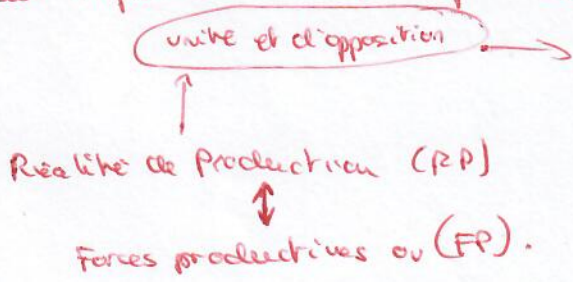 unité et d'opposition
Réalité de Production (RP)
Forces productives ou (FP).